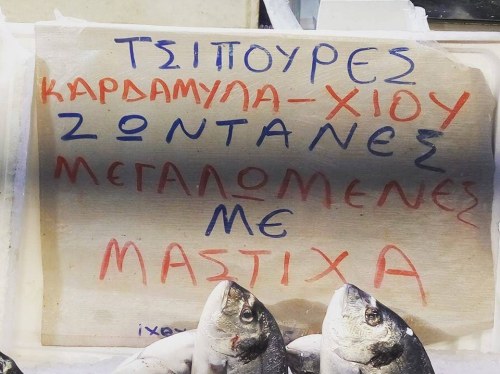 ΤΣΙΠΟΥΡΕΣ
ΚΑΡΔΑΜΥΛΑ-ΧΙΟΥ
ΖΩΝΤΑΝΕΣ
ΜΕΓΑΛΩΜΕΝΕΣ
ΜΕ
ΜΑΣΤΙΧΑ